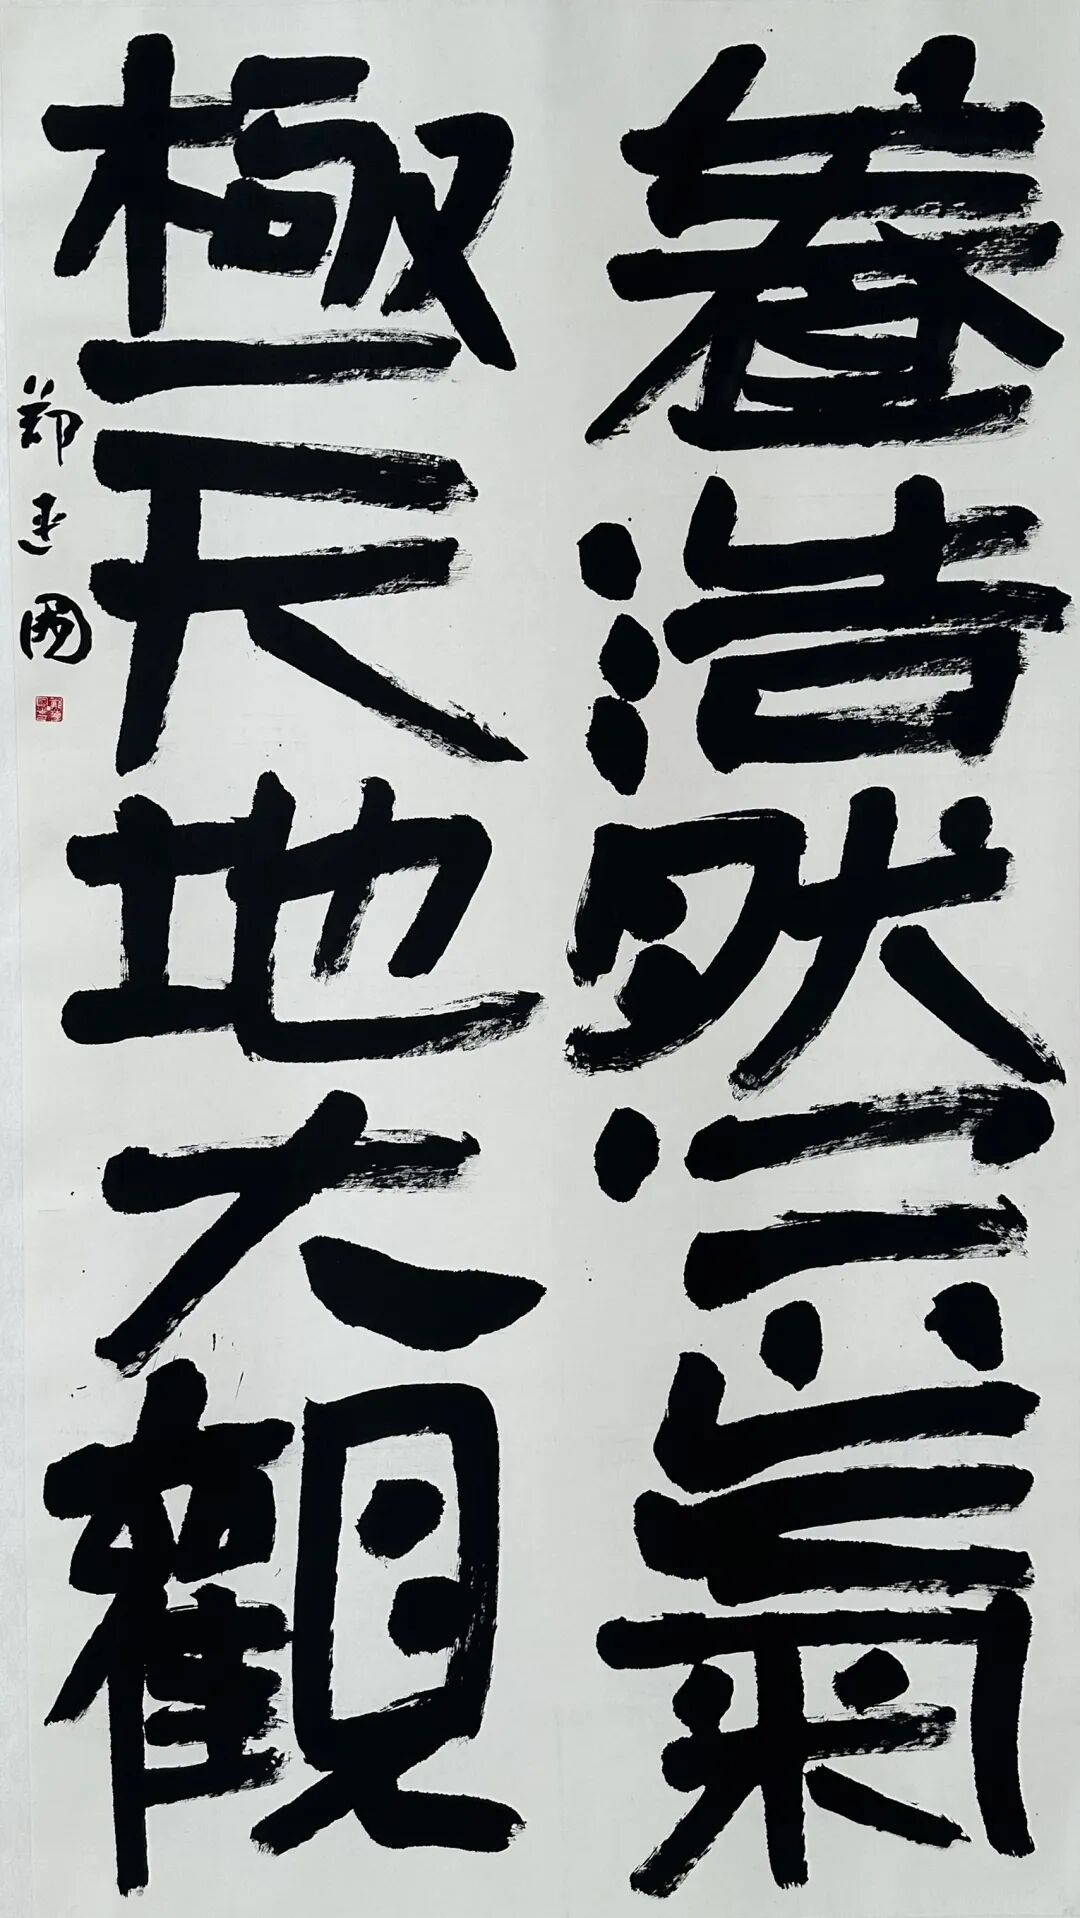 養浩然正氣
極天地大觀
鄭建國